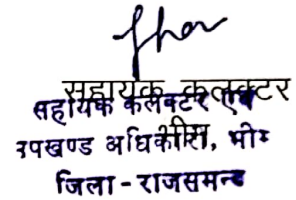 सहायक कलक्टर
सहायक कलेक्टर एवं
उपखण्ड अधिकारी, भीम
भीम
जिला - राजसमन्द